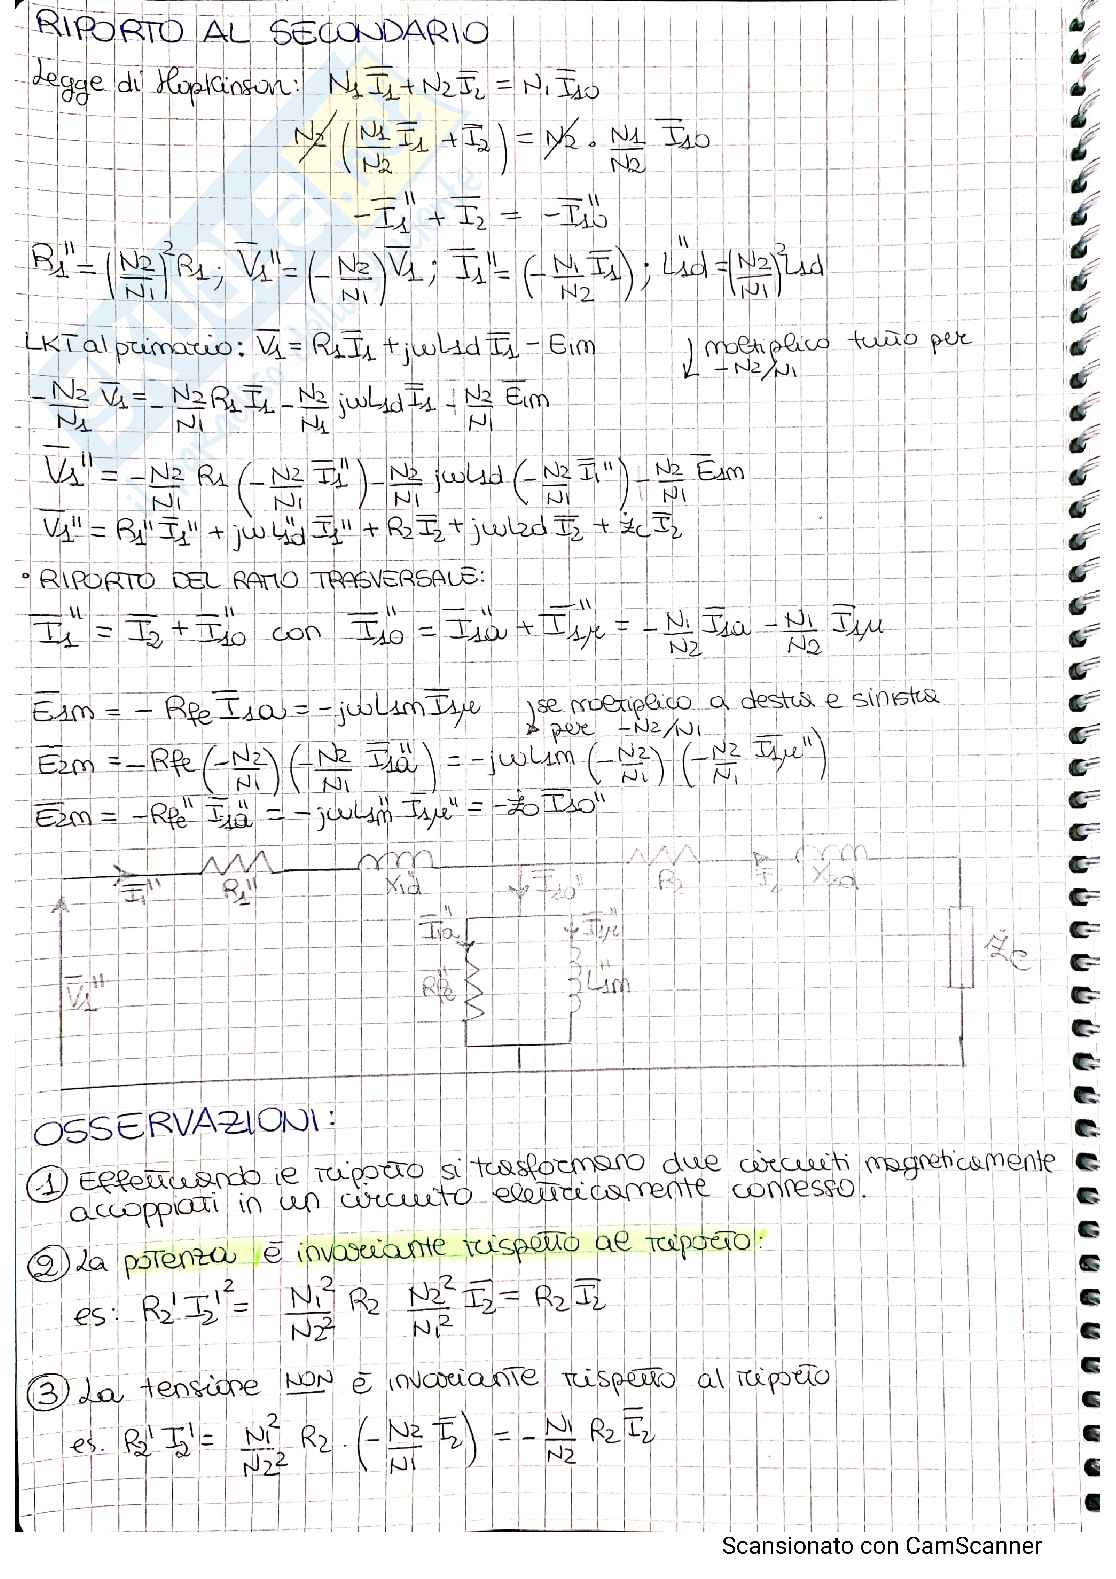 RIPORTO AL SECONDARIO
Legge di Hopkinson: N1 I̅1 + N2 I̅2 = N1 I̅10
N2 (N1/N2 I̅1 + I̅2) = N2 · N1/N2 I̅10
-I̅1'' + I̅2 = -I̅10''
R1'' = (N2/N1)² R1; V̅1'' = (-N2/N1) V̅1; I̅1'' = (-N1/N2 I̅1); L1d'' = (N2/N1)² L1d
LKT al primario: V̅1 = R1 I̅1 + jωL1d I̅1 - E1m ↓ moltiplico tutto per -N2/N1
-N2/N1 V̅1 = -N2/N1 R1 I̅1 - N2/N1 jωL1d I̅1 - N2/N1 E̅1m
V̅1'' = -N2/N1 R1 (-N2/N1 I̅1'') - N2/N1 jωL1d (-N2/N1 I̅1'') - N2/N1 E̅1m
V̅1'' = R1'' I̅1'' + jωL1d'' I̅1'' + R2 I̅2 + jωL2d I̅2 + Żc I̅2
• RIPORTO DEL RAMO TRASVERSALE:
I̅1'' = I̅2 + I̅10'' con I̅10'' = I̅1a'' + I̅1μ'' = -N1/N2 I̅1a - N1/N2 I̅1μ
E̅1m = -Rfe I̅1a = -jωL1m I̅1μ se moltiplico a destra e sinistra
per -N2/N1
E̅2m = -Rfe (-N2/N1) (-N2/N1 I̅1a'') = -jωL1m (-N2/N1) (-N2/N1 I̅1μ'')
E̅2m = -Rfe'' I̅1a'' = -jωL1m'' I̅1μ'' = -Ż0 I̅10''
I̅1'' R1'' X1d I̅10'' R2 I2 X2d
I̅1a'' I̅1μ''
V̅1'' Rfe'' L1m'' Żc
OSSERVAZIONI:
① Effettuando il riporto si trasformano due circuiti magneticamente
accoppiati in un circuito elettricamente connesso.
② La potenza è invariante rispetto al riporto:
es: R2' I2'² = N1²/N2² R2 N2²/N1² I̅2 = R2 I̅2
③ La tensione NON è invariante rispetto al riporto
es. R2' I2' = N1²/N2² R2 · (-N2/N1 I̅2) = -N1/N2 R2 I̅2
Scansionato con CamScanner